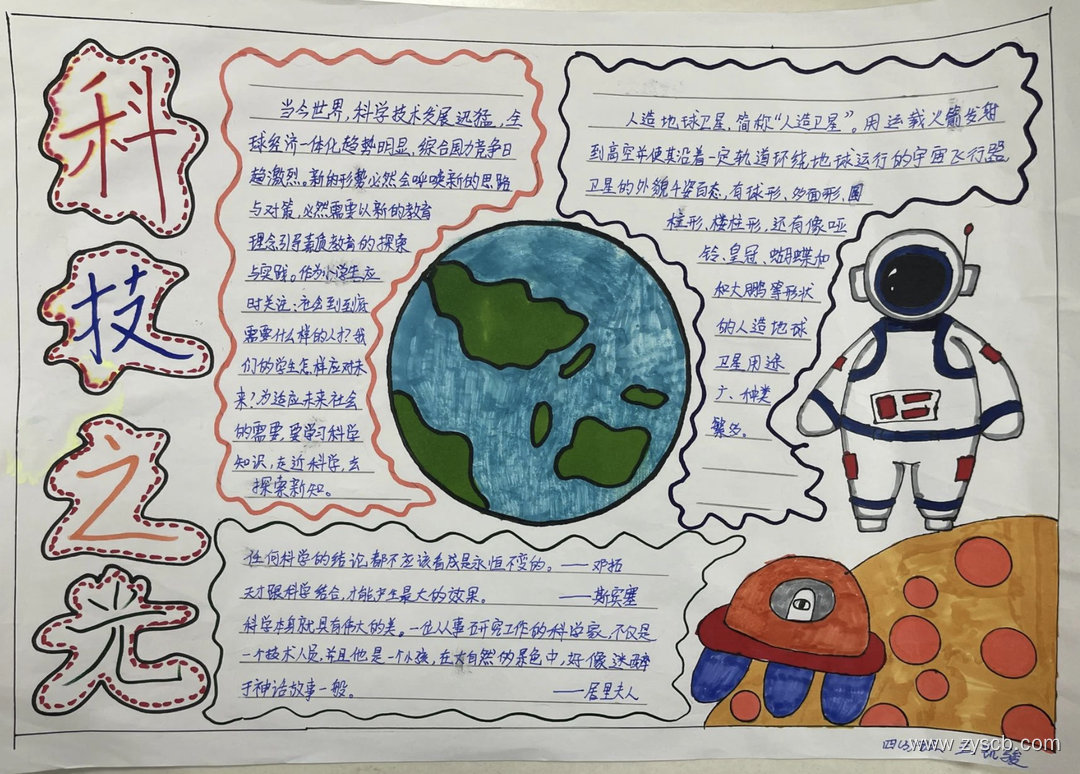 科
技
之
光
当今世界,科学技术发展迅猛,全
球经济一体化趋势明显、综合国力竞争日
趋激烈。新的形势必然会呼唤新的思路
与对策,必然需要以新的教育
理念引导素质教育的探索
与实践。作为小学生应
时关注:社会到到底
需要什么样的人才?我
们的学生怎样应对未
来?为适应未来社会
的需要,要学习科学
知识,走近科学,去
探索新知。
人造地球卫星,简称“人造卫星”。用运载火箭发射
到高空并使其沿着一定轨道环绕地球运行的宇宙飞行器
卫星的外貌千姿百态,有球形、多面形、圆
柱形、楼柱形,还有像哑
铃、皇冠、蝴蝶和
和大鹏等形状
的人造地球
卫星,用途
广、种类
繁多。
任何科学的结论,都不应该看成是永恒不变的。——邓拓
天才跟科学结合,才能产生最大的效果。——斯宾塞
科学本身就具有伟大的美。一位从事研究工作的科学家,不仅是
一个技术人员,并且他是一个小孩,在大自然的景色中,好像迷醉
于神话故事一般。——居里夫人
www.zyscb.com